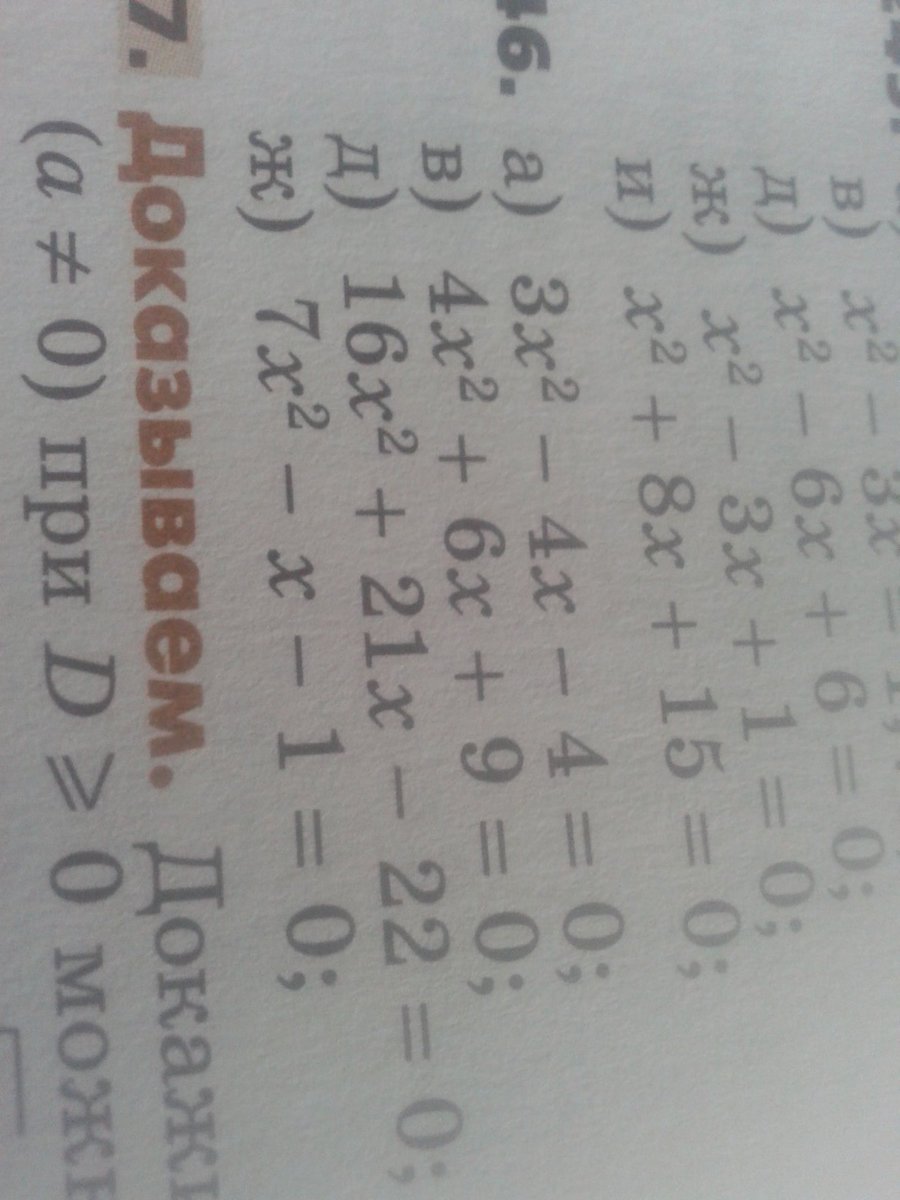 в) x² − 3x = 1;
д) x² − 6x + 6 = 0;
ж) x² − 3x + 1 = 0;
и) x² + 8x + 15 = 0;
46. а) 3x² − 4x − 4 = 0;
в) 4x² + 6x + 9 = 0;
д) 16x² + 21x − 22 = 0;
ж) 7x² − x − 1 = 0;
7. Доказываем. Докажи
(a ≠ 0) при D ⩾ 0 можн